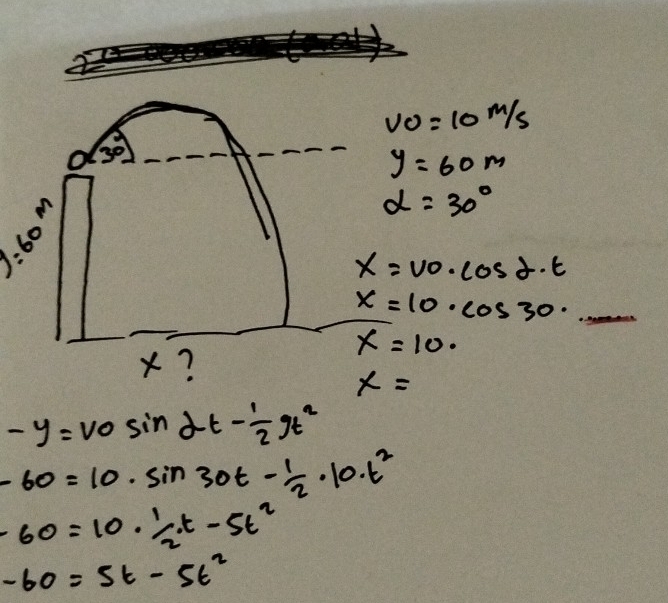 30°
y=60 m
x ?
vo = 10 m/s
y = 60 m
α = 30°
x = vo . cos α . t
x = 10 . cos 30 . ......
x = 10 .
x =
- y = vo sin α t - 1/2 gt²
- 60 = 10 . sin 30t - 1/2 . 10 . t²
- 60 = 10 . 1/2 . t - 5t²
- 60 = 5t - 5t²